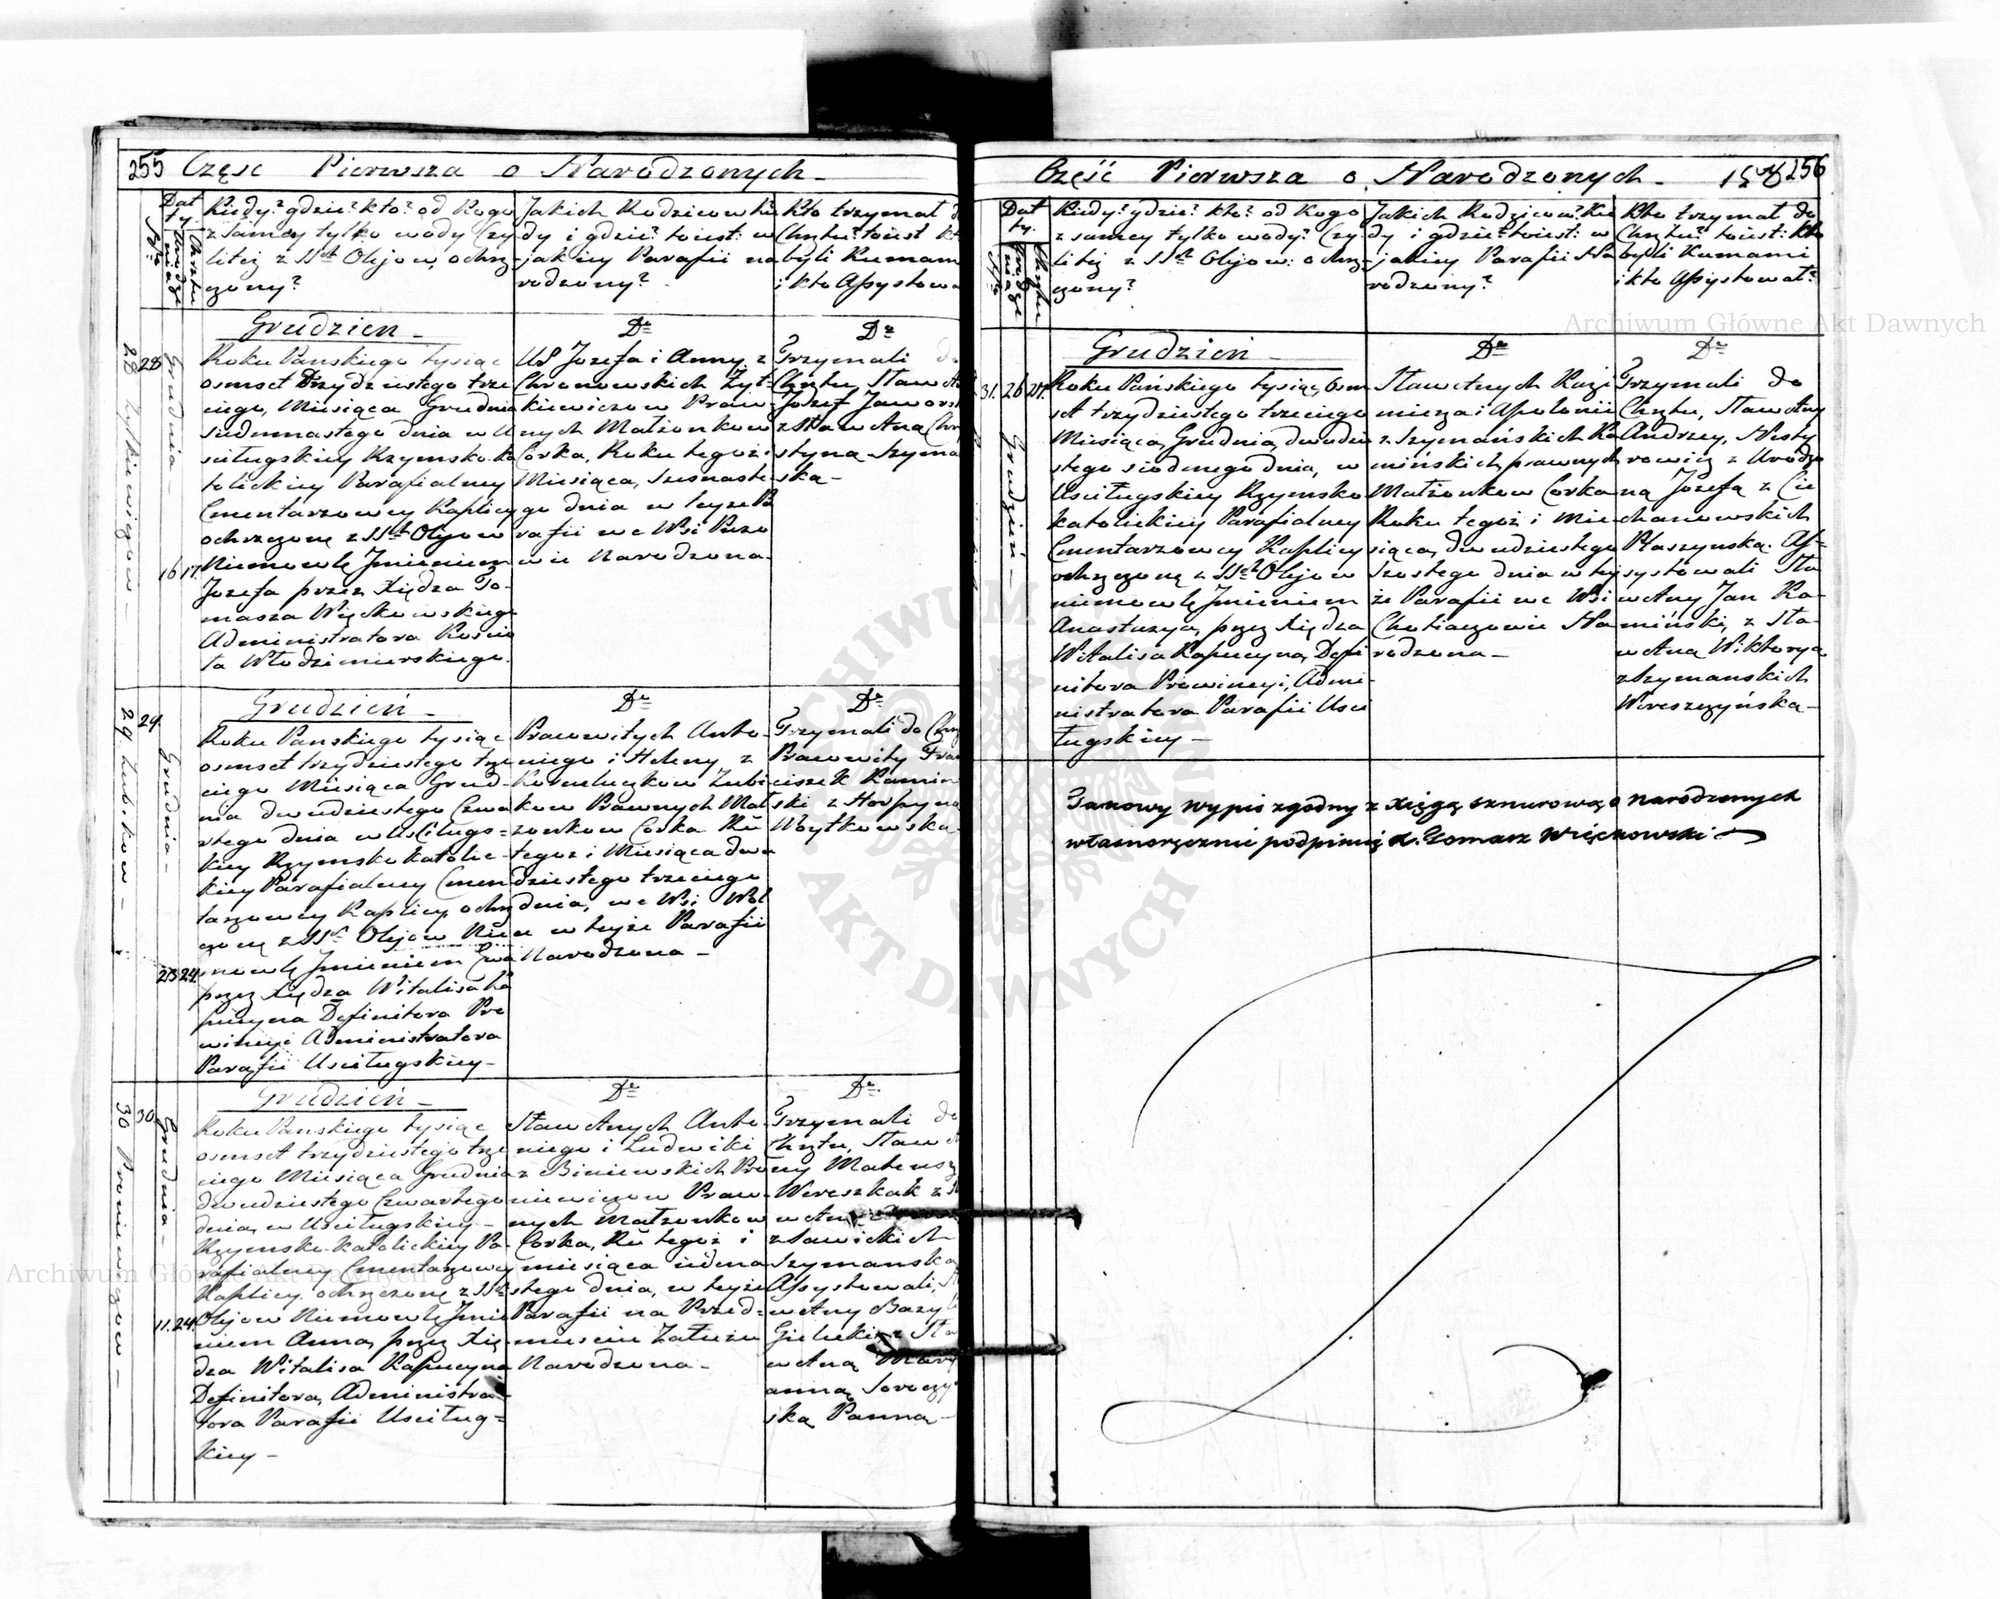 255 Częsc Pierwsza o Narodzonych.
Daty
Kiedy? gdzie? kto? od Kogo
z samey tylko wody Czy
liteż z SSch Olejow, ochrz-
czony?
Jakich Rodzicow Kie
dy i gdzie? toiest: w
jakiey Parafii na
rodzony?
Kto trzymał d
Chrztu? toiest kt
byli Kumam
i kto Assystowa
28
28
Grudnia
Grudzien
Roku Panskiego tysiąc
osmset Trzydziestego trze
ciego, Miesiąca Grudnia
siedmnastego dnia w U
sciługskiey Rzymsko-ka
tolickiey Parafialney
Cmentarzowey Kaplicy
ochrzczone z SSch Olejow
16 17. Niemowlę Jmieniem
Jozefa przez Xiędza To-
masza Więckowskiego
Administratora Kościo
ła Włodzimierskiego.
Dto
Jozefa i Anny z
Chronowskich Żyt-
kiewiczow Praw-
nych Małżonkow
Corka, Roku tegoż i
Miesiąca, szesnaste
go dnia w teyże Pa
rafii we Wsi
wie Narodzona.
Dto
Trzymali do
Chrztu Sławetn
Jozef Jawors
z Sławetną Chry
styną Szyma
ska-
29
29.
Grudnia
Grudzień
Roku Panskiego tysiąc
osmset trzydziestego trze
ciego Miesiąca Grud-
nia dwudziestego Czwa
rtego dnia w Usciługs-
kiey Rzymsko katolic-
kiey Parafialney Cmen
tarzowey Kaplicy ochrz
czone z SSch Olejow Nie
23 24. mowlę Jmieniem Ewa
przez Xiędza Witalisa Ka
pucyna Definitora Pro
wincyi Administratora
Parafii Usciługskiey-
Dto
Prawowitych Anto-
niego i Heleny z
Korneluczkow Zubi-
kow Prawnych Mał
żonkow Corka Ku
tegoz i Miesiąca dwu
dziestego trzeciego
dnia, we Wsi
w teyże Parafii
Narodzona-
Dto
Trzymali do Chrz
Prawowity Fran
ciszek Kamin
ski z Horpyną
Woytkowską-
30
30.
Grudnia
Grudzień
Roku Panskiego tysiąc
osmset trzydziestego trze
ciego Miesiąca Grudnia
dwudziestego Czwartego
dnia, w Usciługskiey-
Rzymsko-katolickiey Pa-
rafialney Cmentarzowey
Kaplicy ochrzczone z SSch
11. 24. Olejow Niemowlę Jmie
niem Anna, przez Xię
dza Witalisa Kapucyna
Definitora, Administra
tora Parafii Usciług-
kiey-
Dto
Sławetnych Anto
niego i Ludwiki
z Biniewskich Pro
niewiczow Praw-
nych Małżonkow
Corka, Ku tegoż i
miesiąca iedena
stego dnia, w teyże
Parafii na Przed-
mieściu Załuziu
Narodzona-
Dto
Trzymali do
Chrztu, Sławet
ny Mateusz
Wereszkak z Sł
wetną
z Sawickich
Szymanska
Assystowali,
wetny Bazyl
Gielecki z Sła
wetną Mary
anną Soroczy
ską Panną-
Część Pierwsza o Narodzonych. 256
Daty.
Kiedy? gdzie? kto? od Kogo
z samey tylko wody? Czy
liteż z SSch Olejow: ochrz-
czony?
Jakich Rodzicow? Kie
dy i gdzie? toiest: w
jakiey Parafii Na
rodzony?
Kto trzymał do
Chrztu? toiest: kto
byli Kumami
i kto Assystował?
31. 26 27.
Grudzień
Grudzień
Roku Pańskiego tysiąc Osm
set trzydziestego trzeciego
Miesiąca, Grudnia, dwudzie
stego siodmego dnia, w
Usciługskiey Rzymsko
katolickiey Parafialney
Cmentarzowey Kaplicy
ochrzczone z SSch Olejow
niemowlę Jmieniem
Anastazya, przez Xiędza
Witalisa Kapucyna, Defi
nitora Prowincyi, Admi-
nistratora Parafii Usci
ługskiey-
Dto
Sławetnych Kazi
mierza i Apolonii
z Szymańskich Ka
mińskich, prawnych
Małżonkow Corka
Roku tegoż i Mie
siąca, dwudziestego
szostego dnia w tey
że Parafii we Wsi
Chotiaczowie Na
rodzona-
Dto
Trzymali do
Chrztu, Sławetny
Andrzey, Nesty
rowicz z Urodzo
ną Jozefą z Cie
chanowskich
Ptaszynską. As-
systowali Sła
wetny Jan Ka-
miński, z Sła-
wetną Wiktoryą
z Szymanskich
Wereszczyńską-
Takowy wypis zgodny z xięgą sznurową o narodzonych
własnoręcznie podpisuię X. Tomasz Więckowski
Archiwum Główne Akt Dawnych
Archiwum Główne Akt Dawnych
ARCHIWUM
AKT DAWNYCH